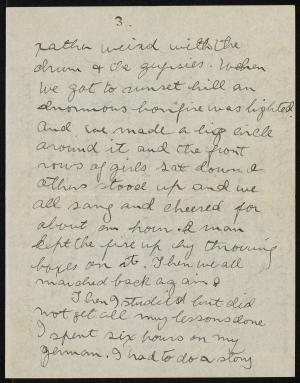 3.
rather weird with the
drum & the gypsies. When
we got to sunset hill an
enormous bonfire was lighted
and we made a big circle
around it and the front
rows of girls sat down &
others stood up and we
all sang and cheered for
about an hour. A man
kept the fire up by throwing
boxes on it. Then we all
marched back again &
Then I studied but did
not get all my lessons done
I spent six hours on my
german. I had to do a story